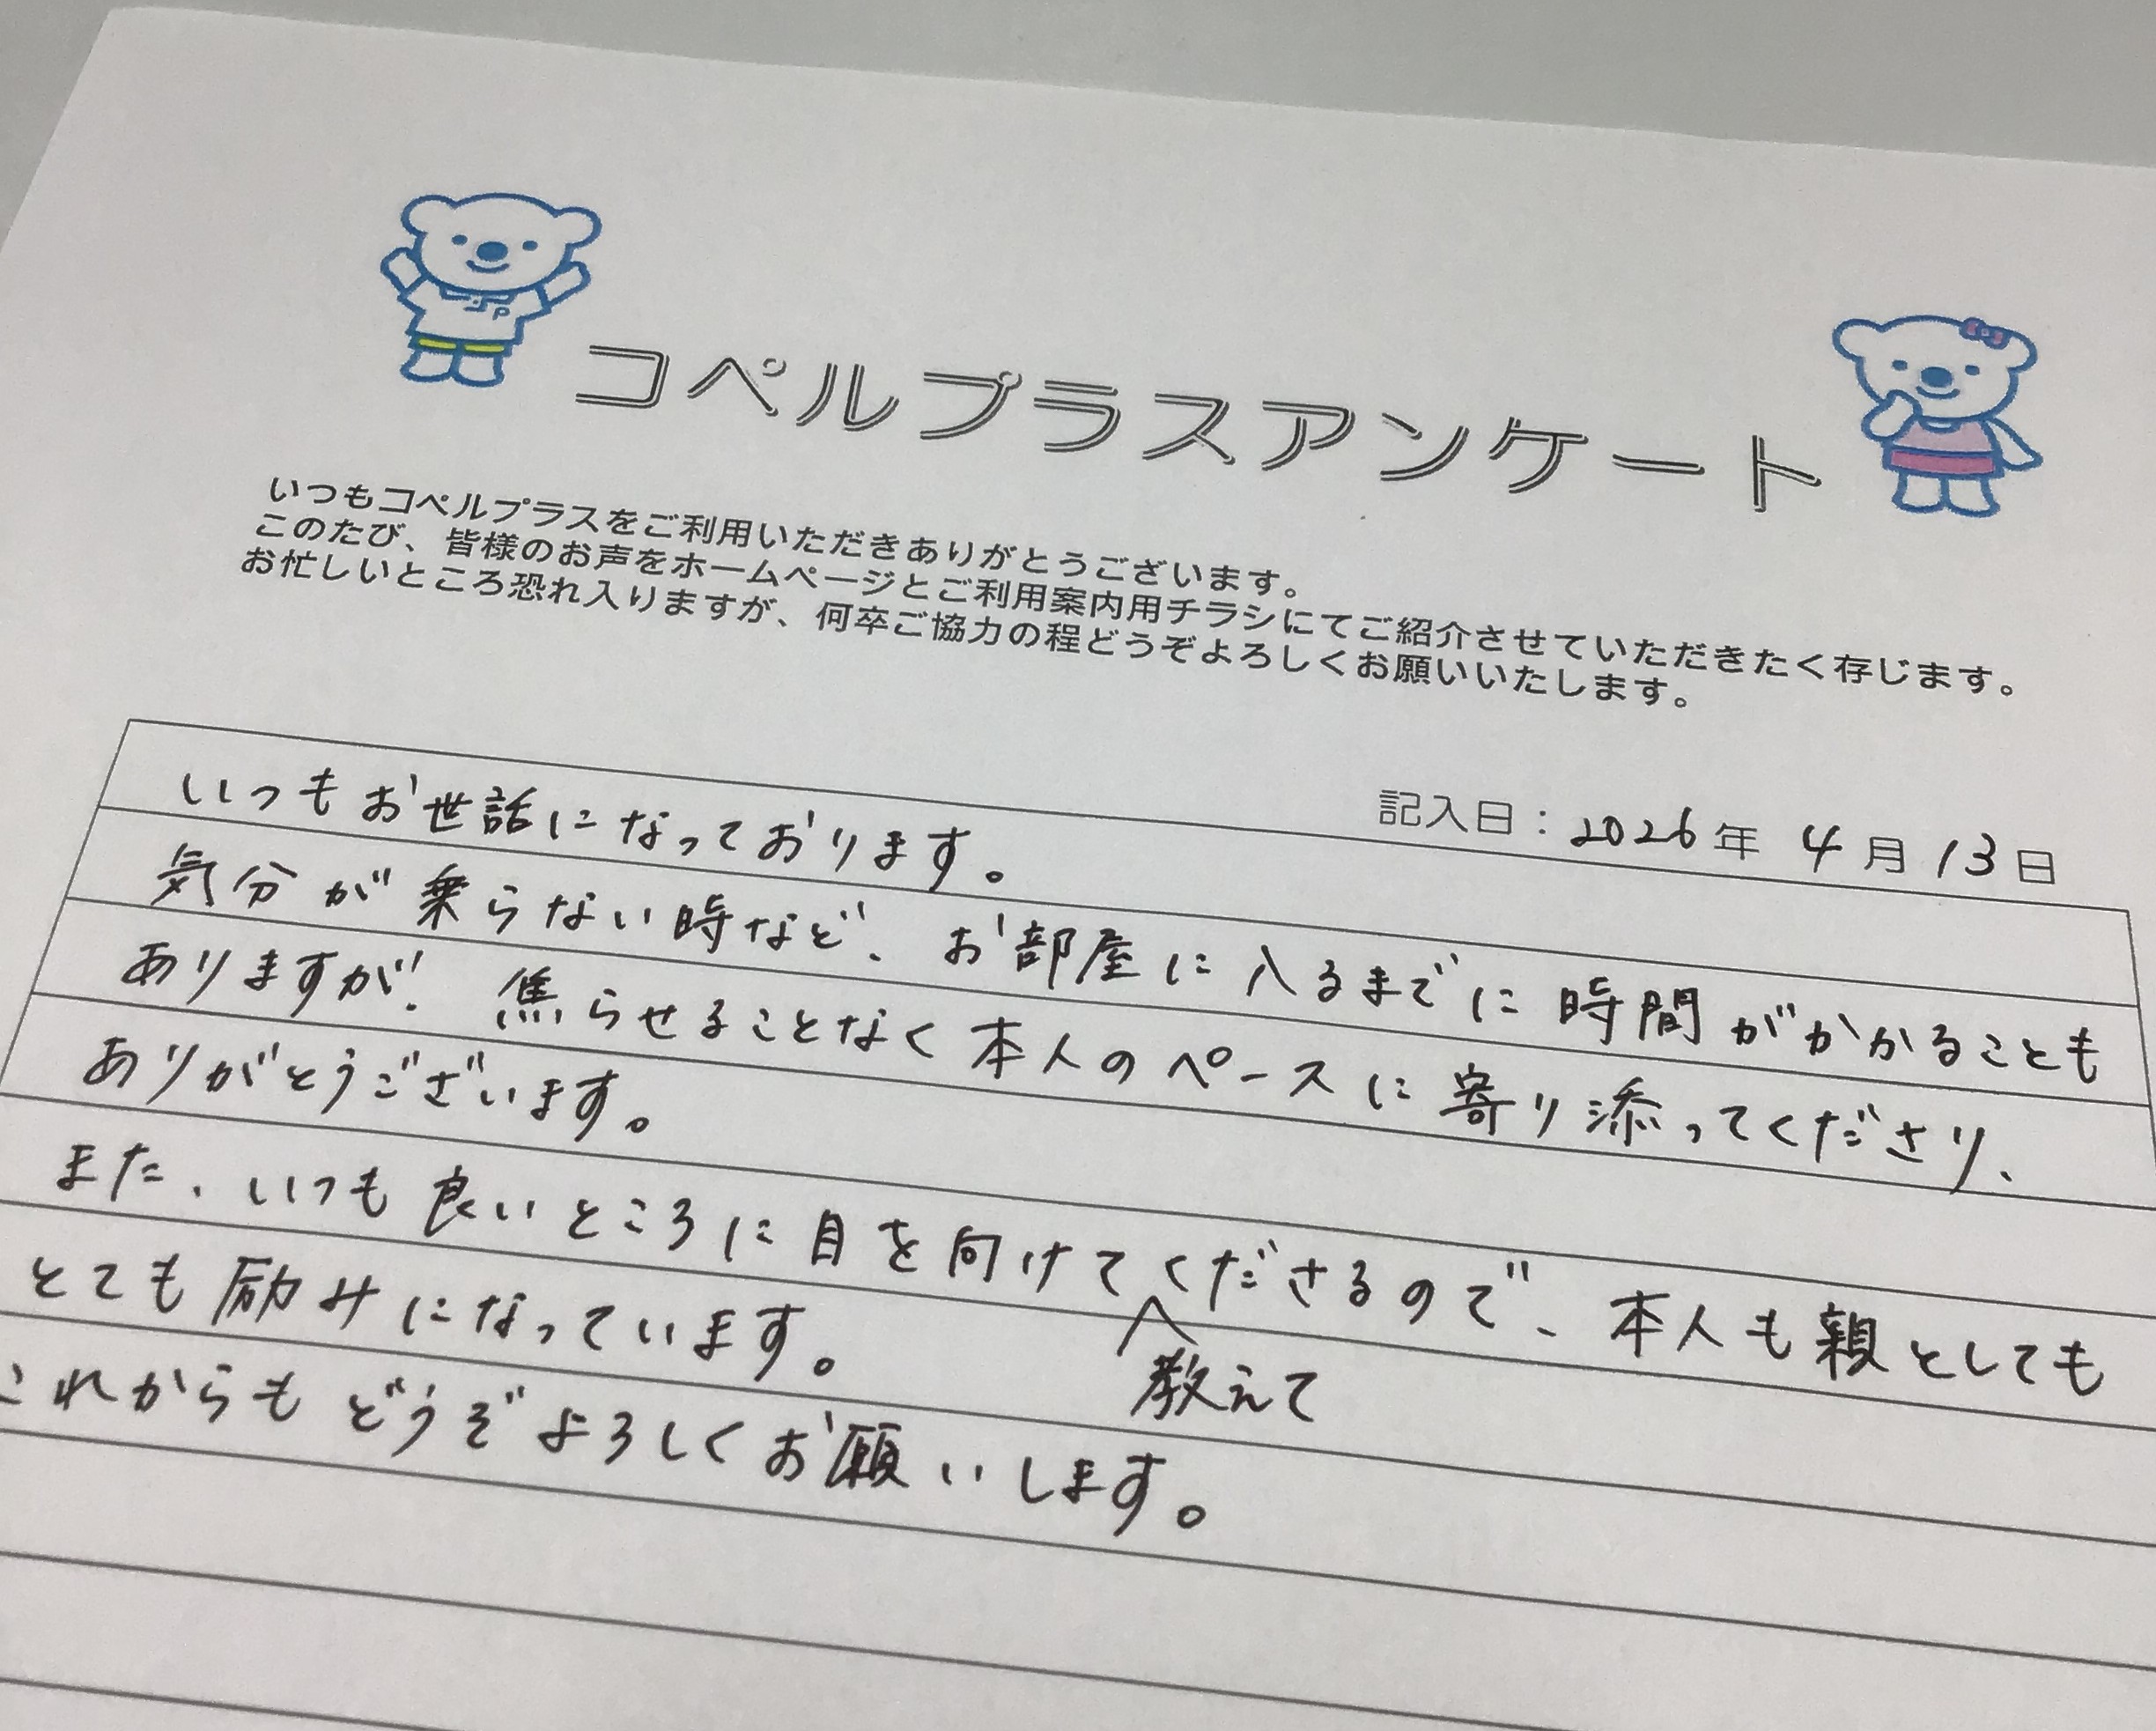 コペルプラスアンケート
いつもコペルプラスをご利用いただきありがとうございます。
このたび、皆様のお声をホームページとご利用案内用チラシにてご紹介させていただきたく存じます。
お忙しいところ恐れ入りますが、何卒ご協力の程どうぞよろしくお願いいたします。
記入日：2026年 4月 13日
いつもお世話になっております。
気分が乗らない時など、お部屋に入るまでに時間がかかることも
ありますが、焦らせることなく本人のペースに寄り添ってくださり、
ありがとうございます。
また、いつも良いところに目を向けてくださるので、本人も親としても
教えて
とても励みになっています。
これからもどうぞよろしくお願いします。